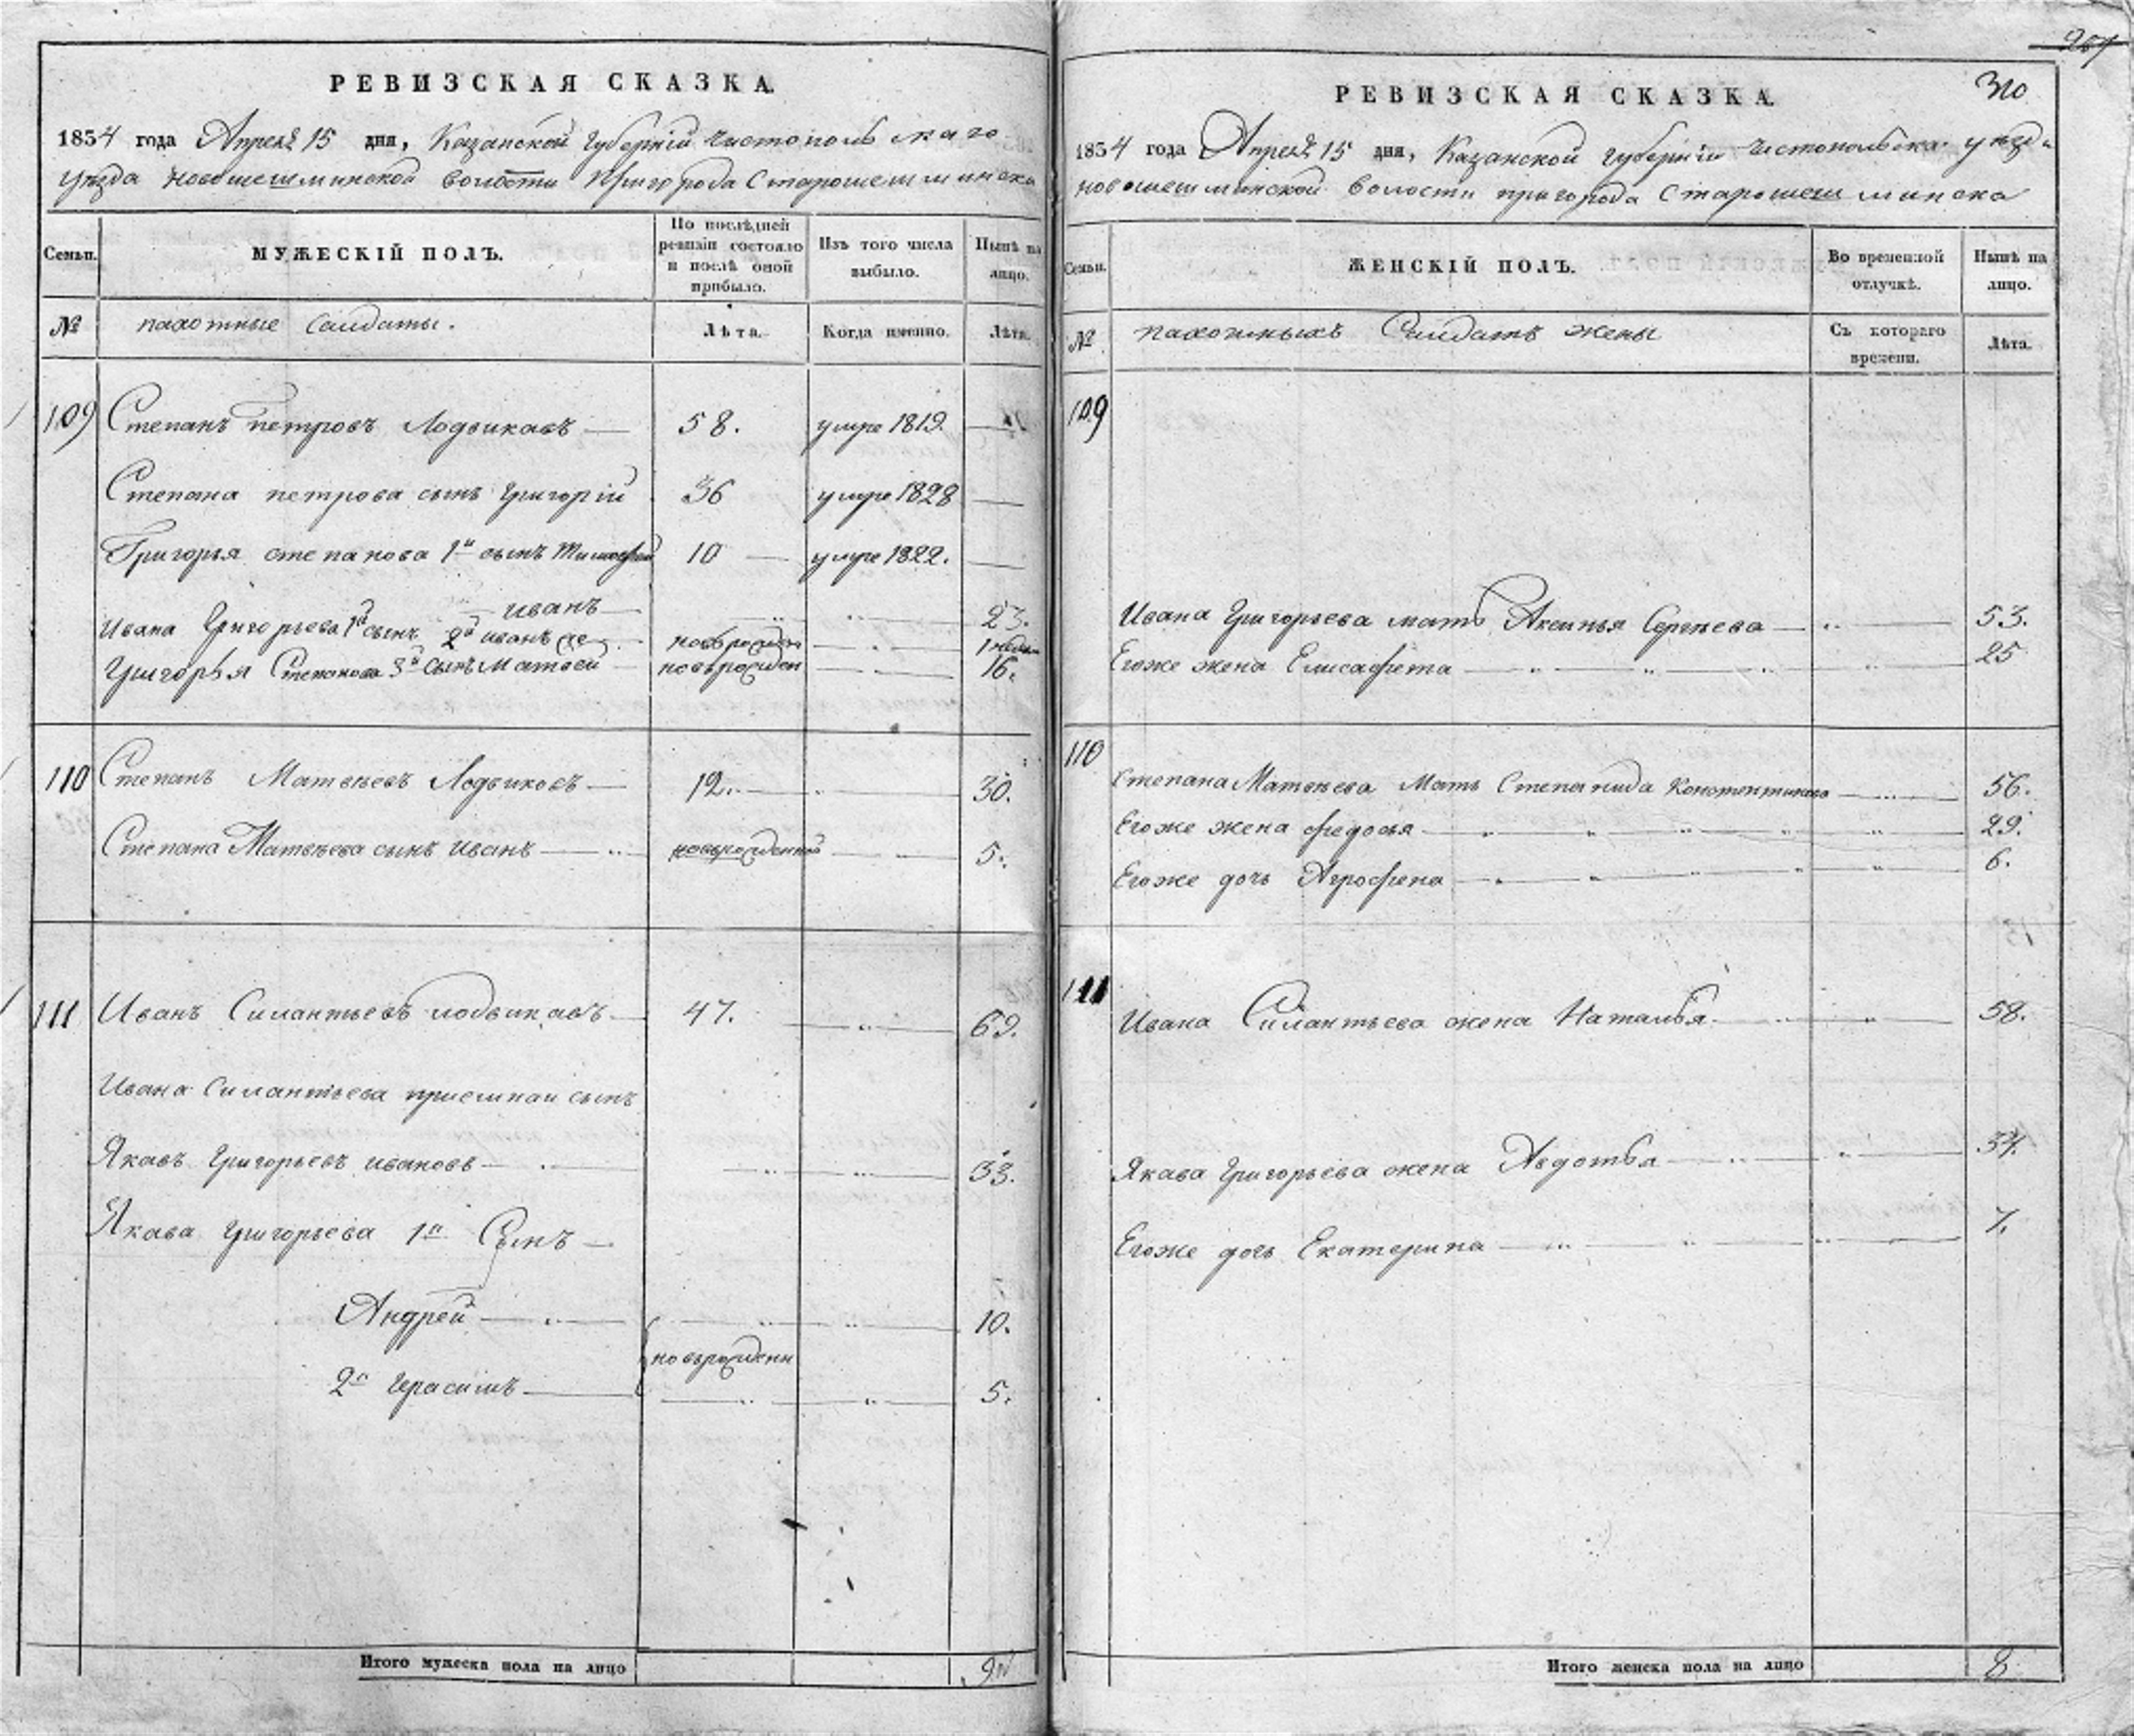 РЕВИЗСКАЯ СКАЗКА.
1854 года Апреля 15 дня, Казанской Губернiи Чистопольскаго
уѣзда Новошешминской волости Пригорода Старошешминска
Семьи.
МУЖЕСКIЙ ПОЛЪ.
По послѣдней
ревизiи состояло
и послѣ оной
прибыло.
Изъ того числа
выбыло.
Нынѣ на
лицо.
№
пахотные Салдаты.
Лѣта.
Когда именно.
Лѣта.
109 Степанъ петровъ Лодвикавъ 58. умре 1819.
Степана петрова сынъ Григорiй 36 умре 1828
Григорья степанова 1й сынъ Тимофей 10 умре 1822.
иванъ 23.
Ивана Григорьева 1й сынъ 2й иванъ же новърожден 1 недели
Григорья Степанова 3й сынъ Матвей новърожден 16.
110 Степанъ Матвѣевъ Лодвиковъ 12. 30.
Степана Матвѣева сынъ иванъ новърожденной 5.
111 Иванъ Силантьевъ лодвикавъ 47. 69.
Ивана Силантьева приемнай сынъ
Якавъ Григорьевъ ивановъ 33.
Якава Григорьева 1й Сынъ
Андрей 10.
новърожденн
2й Герасимъ 5.
Итого мужеска пола на лицо 9
257
310
РЕВИЗСКАЯ СКАЗКА.
1854 года Апреля 15 дня, Казанской губернiи Чистопольска уѣзда
новошешминской волости пригорода Старошешминска
Семьи.
ЖЕНСКIЙ ПОЛЪ.
Во временной
отлучкѣ.
Нынѣ на
лицо.
№
пахотныхъ Салдатъ жены
Съ котораго
времени.
Лѣта.
109
Ивана Григорьева мать Аксинья Сергѣева 53.
Егоже жена Елисафета 25
110
Степана Матвѣева Мать Степанида Константинова 56.
Егоже жена федосья 29.
Егоже дочь Агрофена 6.
111
Ивана Силантьева жена Наталья 58.
Якава Григорьева жена Авдотья 34.
Егоже дочь Екатерина 7.
Итого женска пола на лицо 8